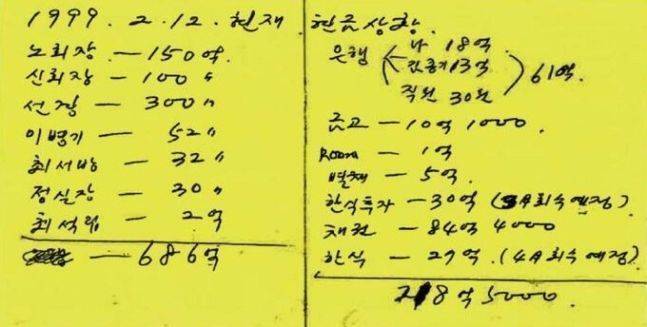 1999. 2. 12. 현재
노회장 — 150억.
신회장 — 100 〃
선장 — 300 〃
이병기 — 52 〃
최서방 — 32 〃
정실장 — 30 〃
최석림 — 2억
— 686억
현금상황.
은행
나 18억
13억
직원 30억
61억.
금고 — 10억 1000.
Room — 1억
별채 — 5억.
한식투자 — 30억 (3月회수예정)
채권 — 84억 4000
한식 — 27억. (4月회수예정)
218억 5000.